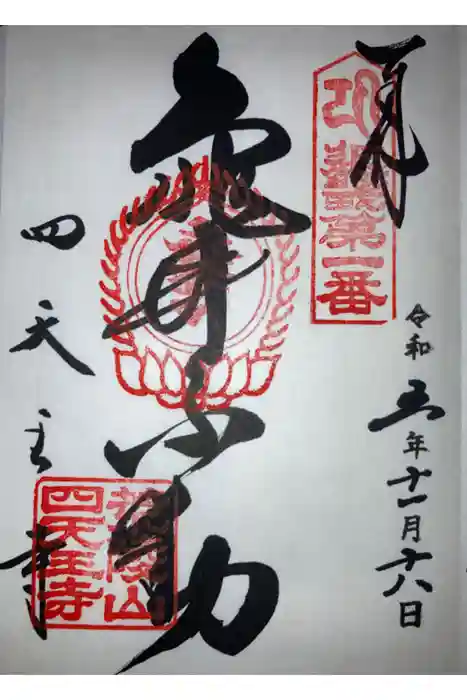 奉拝
第一番
令和五年十一月十八日
亀井不動
四天王寺
荒陵山
四天王寺